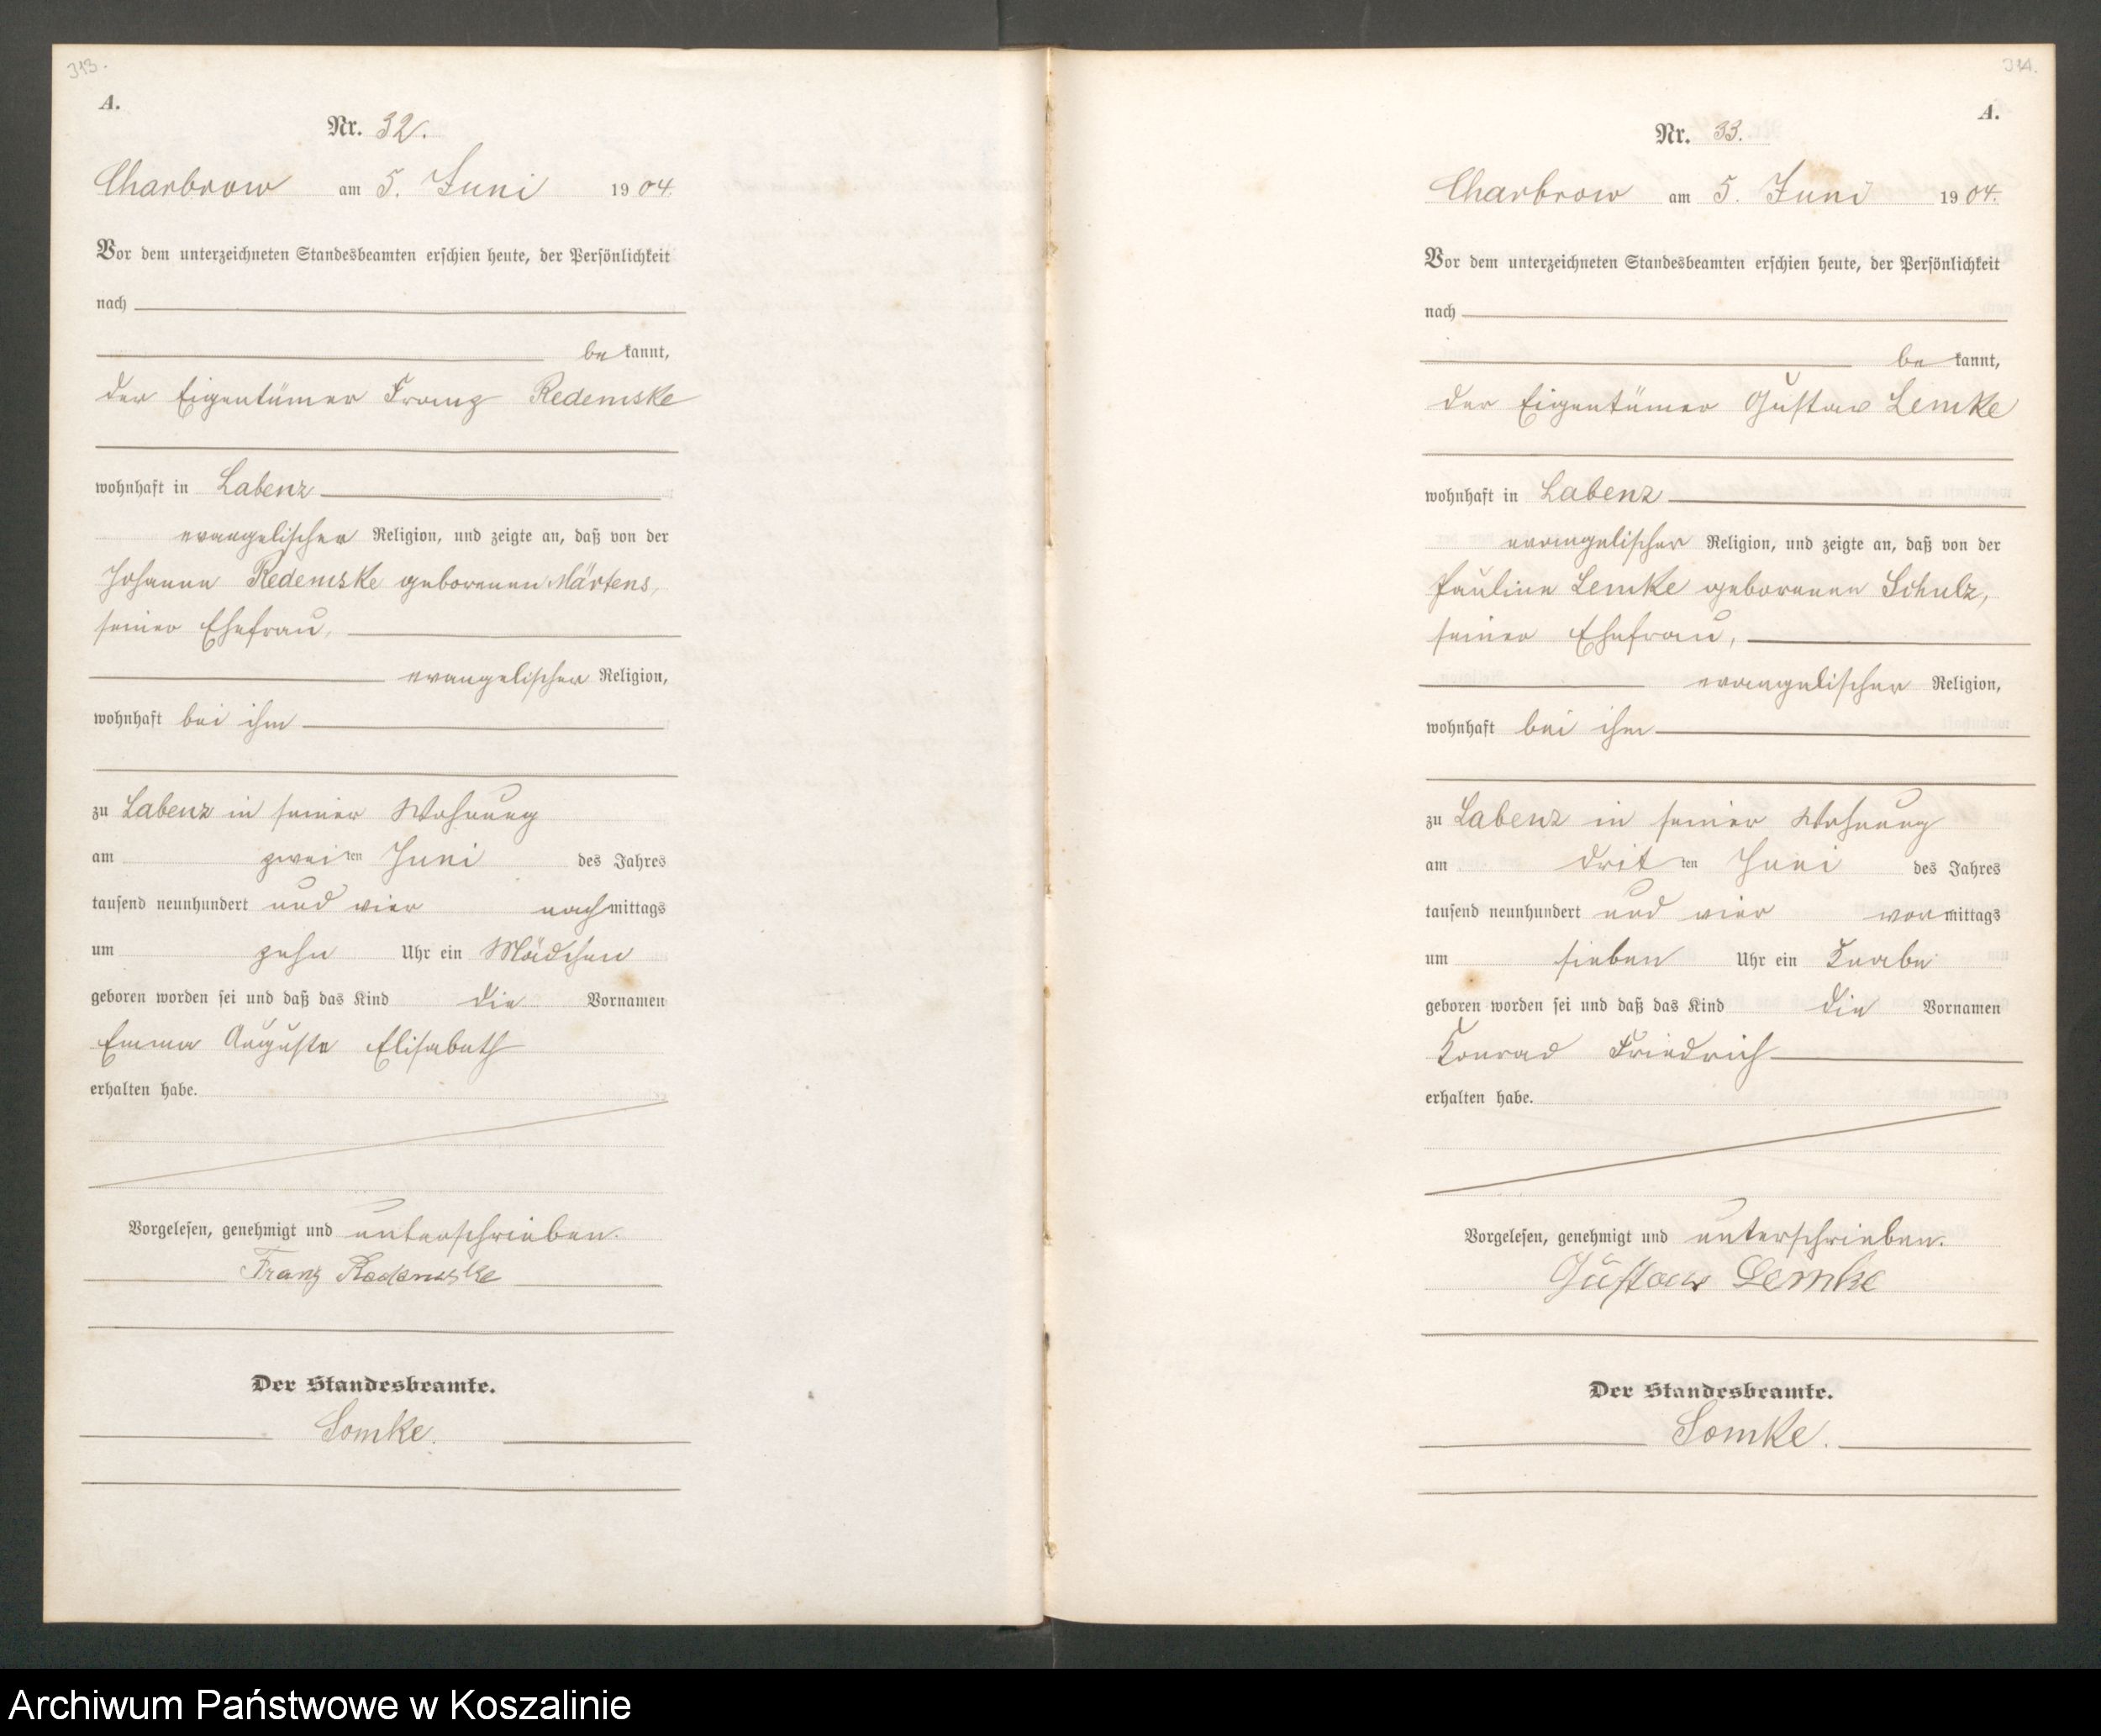 313.
A.
Nr. 32.
Charbrow am 5. Juni 1904.
Vor dem unterzeichneten Standesbeamten erschien heute, der Persönlichkeit
nach
bekannt,
der Eigentümer Franz Redemske
wohnhaft in Labenz
evangelischer Religion, und zeigte an, daß von der
Johanne Redemske geborenen Märtens,
seiner Ehefrau,
evangelischer Religion,
wohnhaft bei ihm
zu Labenz in seiner Wohnung
am zweiten Juni des Jahres
tausend neunhundert und vier nachmittags
um zehn Uhr ein Mädchen
geboren worden sei und daß das Kind die Vornamen
Emma Auguste Elisabeth
erhalten habe.
Vorgelesen, genehmigt und unterschrieben.
Franz Redemske
Der Standesbeamte.
Somke.
314.
A.
Nr. 33.
Charbrow am 5. Juni 1904.
Vor dem unterzeichneten Standesbeamten erschien heute, der Persönlichkeit
nach
bekannt,
der Eigentümer Gustav Lemke
wohnhaft in Labenz
evangelischer Religion, und zeigte an, daß von der
Pauline Lemke geborenen Schulz,
seiner Ehefrau,
evangelischer Religion,
wohnhaft bei ihm
zu Labenz in seiner Wohnung
am dritten Juni des Jahres
tausend neunhundert und vier vormittags
um sieben Uhr ein Knabe
geboren worden sei und daß das Kind die Vornamen
Konrad Friedrich
erhalten habe.
Vorgelesen, genehmigt und unterschrieben.
Gustav Lemke
Der Standesbeamte.
Somke.
Archiwum Państwowe w Koszalinie